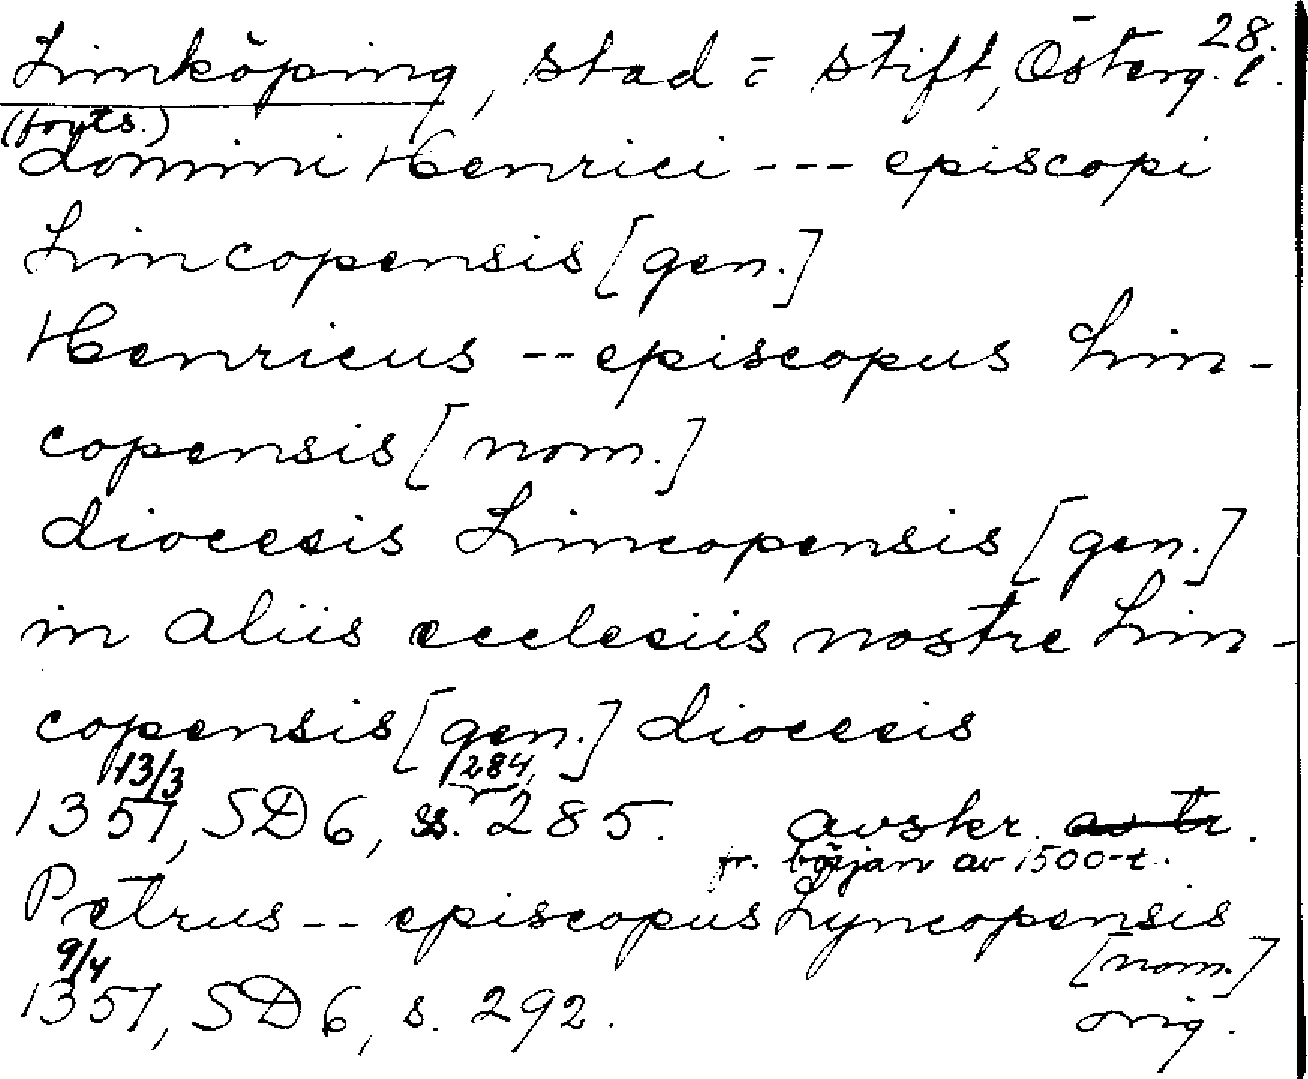 28.
Linköping, stad = stift, Österg.l.
(forts.)
domini Henrici --- episcopi
Lincopensis [gen.]
Henricus -- episcopus Lin-
copensis [nom.]
diocesis Lincopensis [gen.]
in aliis ecclesiis nostre Lin-
copensis [gen.] diocesis
13/3 284,
1357, SD 6, ss. 285. avskr.
fr. början av 1500-t.
Petrus -- episcopus Lyncopensis
[nom.]
9/4
1357, SD 6, s. 292. orig.